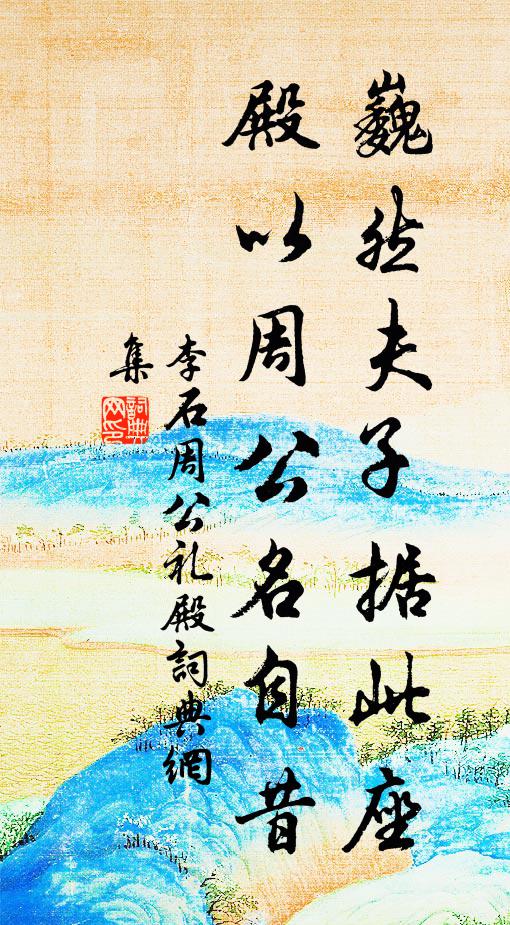 巍然夫子据此座
殿以周公名自昔
李石周公礼殿詞典網
集
詞典网印